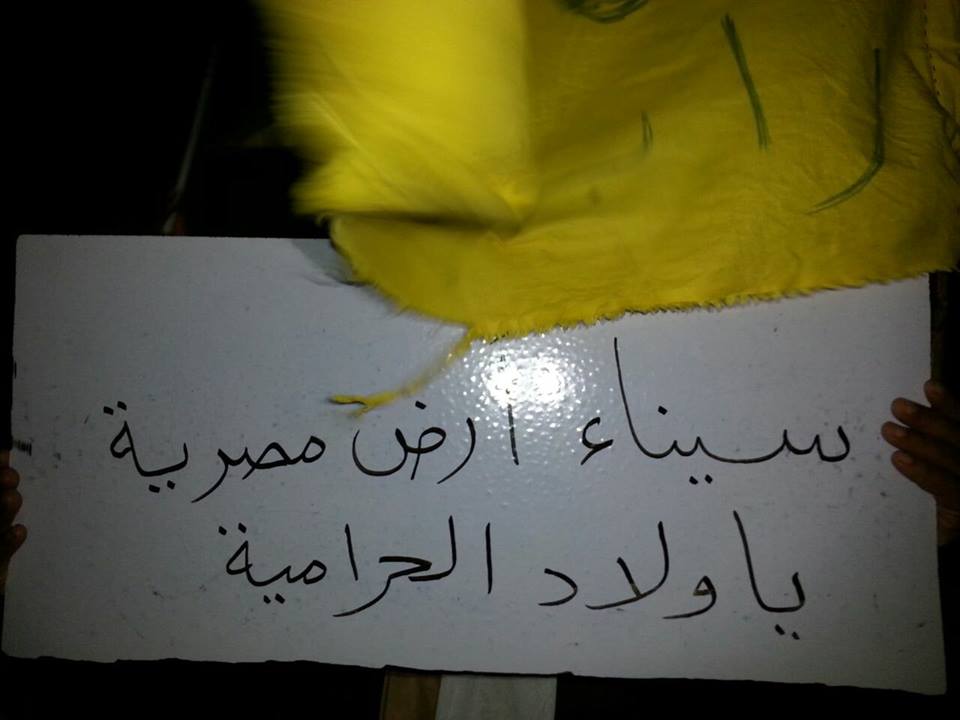 سيناء أرض مصرية
يا ولاد الحرامية